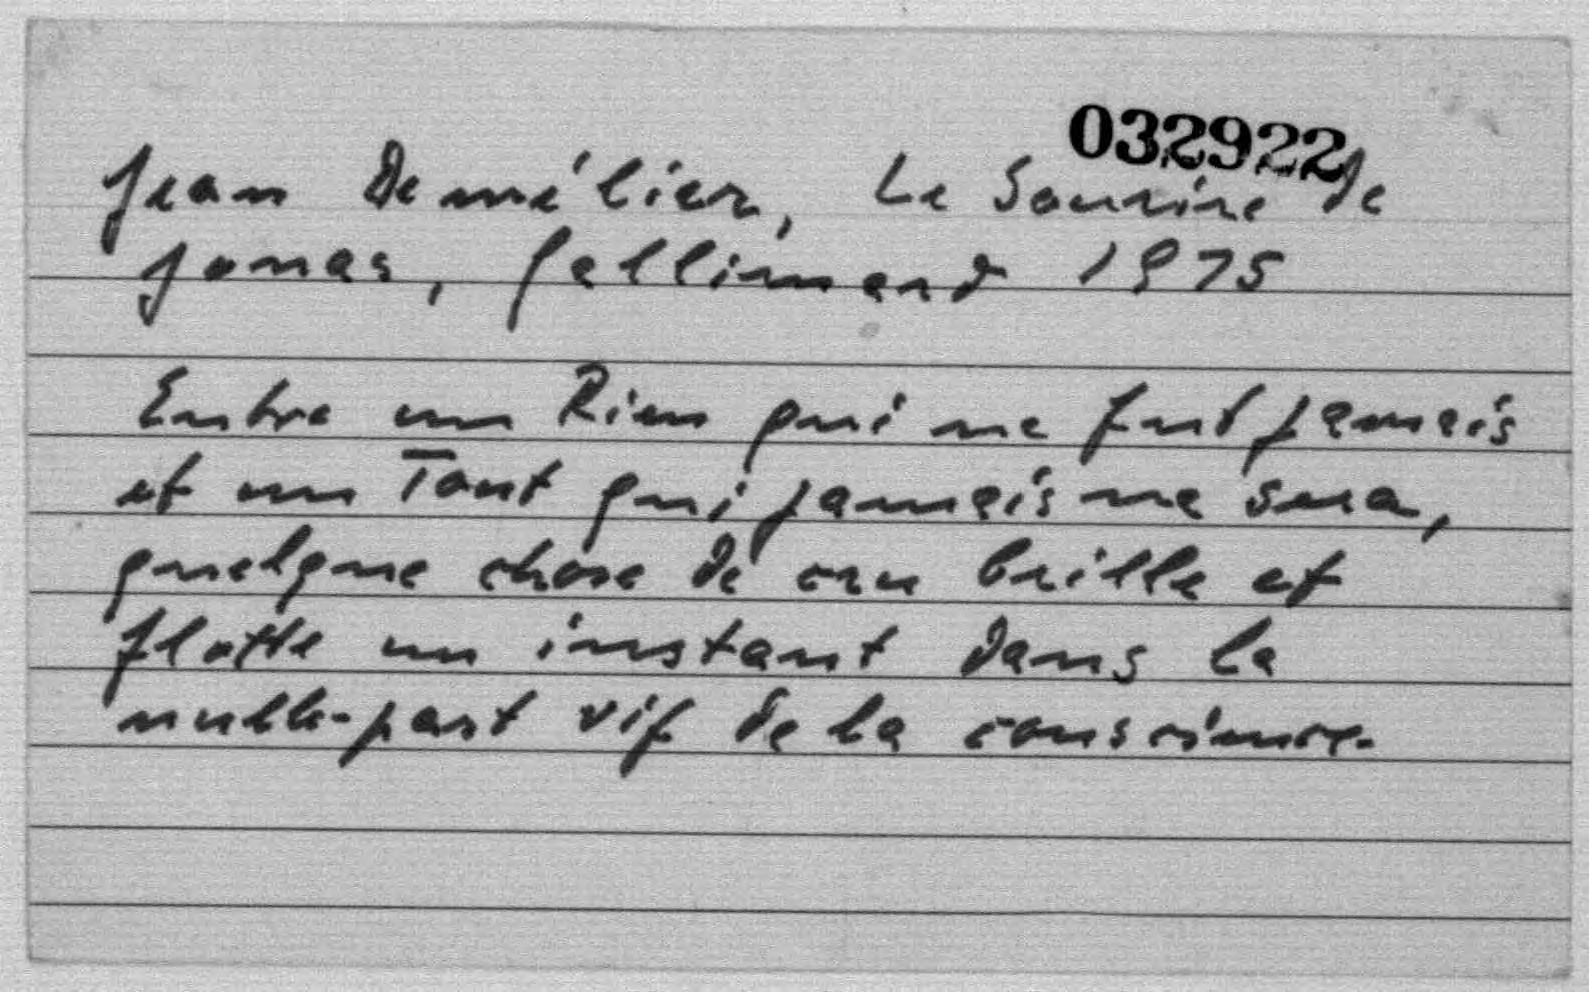 032922
Jean Demélier, Le Sourire de
Jonas, Gallimard 1975
Entre un Rien qui ne fut jamais
et un Tout qui jamais ne sera,
quelque chose de cru brille et
flotte un instant dans la
nulle-part vif de la conscience.